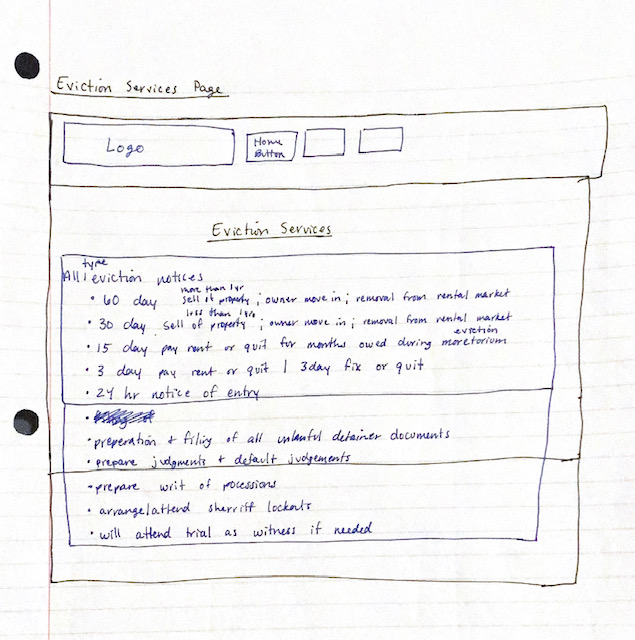 Eviction Services Page
Logo
Home
Button
Eviction Services
type
All eviction notices
more than 1yr
• 60 day sell of property ; owner move in ; removal from rental market
less than 1yr
• 30 day sell of property ; owner move in ; removal from rental market
eviction
• 15 day pay rent or quit for months owed during moretorium
• 3 day pay rent or quit | 3day fix or quit
• 24 hr notice of entry
• preperation + filiy of all unlawful detainer documents
• prepare judgments + default judgements
• prepare writ of pocessions
• arrange/attend sherriff lockouts
• will attend trial as witness if needed